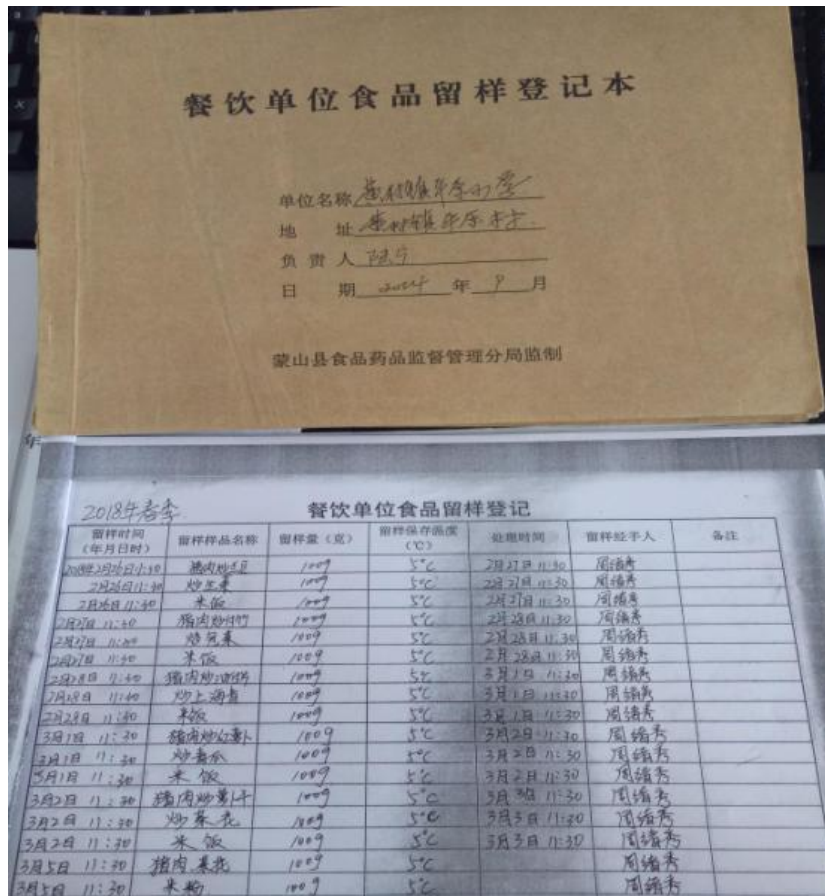 餐饮单位食品留样登记本
单位名称 黄村镇平乐小学
地 址 黄村镇平乐村
负责人
日 期 年 9 月
蒙山县食品药品监督管理分局监制
年
2018年春季
餐饮单位食品留样登记
留样时间（年月日时） 留样样品名称 留样量（克） 留样保存温度（℃） 处理时间 留样经手人 备注
2018年2月26日11:30 猪肉炒 100g 5℃ 2月27日11:30 周绪秀
2月26日11:30 炒生菜 100g 5℃ 2月27日11:30 周绪秀
2月26日11:30 米饭 100g 5℃ 2月27日11:30 周绪秀
2月27日 11:30 猪肉炒 100g 5℃ 2月28日11:30 周绪秀
2月27日 11:30 炒 菜 100g 5℃ 2月28日11:30 周绪秀
2月27日 11:30 米饭 100g 5℃ 2月28日11:30 周绪秀
2月28日 11:30 猪肉炒 100g 5℃ 3月1日 11:30 周绪秀
2月28日 11:30 炒上海青 100g 5℃ 3月1日 11:30 周绪秀
2月28日 11:30 米饭 100g 5℃ 3月1日 11:30 周绪秀
3月1日 11:30 猪肉炒红萝卜 100g 5℃ 3月2日 11:30 周绪秀
3月1日 11:30 炒 100g 5℃ 3月2日 11:30 周绪秀
3月1日 11:30 米饭 100g 5℃ 3月2日 11:30 周绪秀
3月2日 11:30 猪肉炒萝卜干 100g 5℃ 3月3日 11:30 周绪秀
3月2日 11:30 炒菜花 100g 5℃ 3月3日 11:30 周绪秀
3月2日 11:30 米饭 100g 5℃ 3月3日 11:30 周绪秀
3月5日 11:30 猪肉 菜花 100g 5℃ 周绪秀
3月5日 11:30 米粉 100g 5℃ 周绪秀